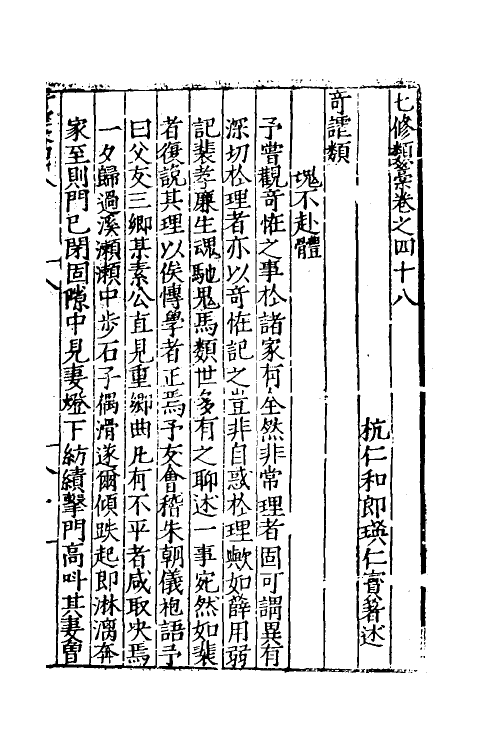 七修類藁卷之四十八
杭仁和郎瑛仁寶著述
奇謔類
塊不赴體
予嘗觀奇怪之事於諸家有全然非常理者固可謂異有
深切於理者亦以奇怪記之豈非自惑於理歟如薛用弱
記裴孝廉生魂馳鬼馬類世多有之聊述一事宛然如裴
者復說其理以俟博學者正焉予友會稽朱朝儀袍語予
曰父友三鄉某素公直見重鄉曲凡有不平者咸取央焉
一夕歸過溪瀨瀨中步石子偶滑遂爾傾跌起即淋漓奔
家至則門已閉固隙中見妻燈下紡績擊門高呌其妻曾